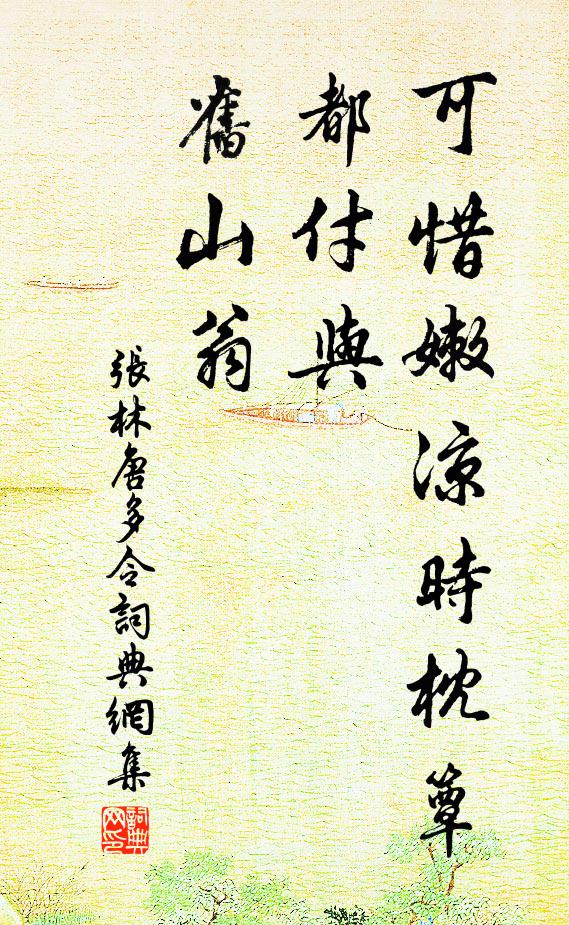 可惜嫩涼時枕簟
都付與
舊山翁
張林唐多令詞典網集
詞典
网印